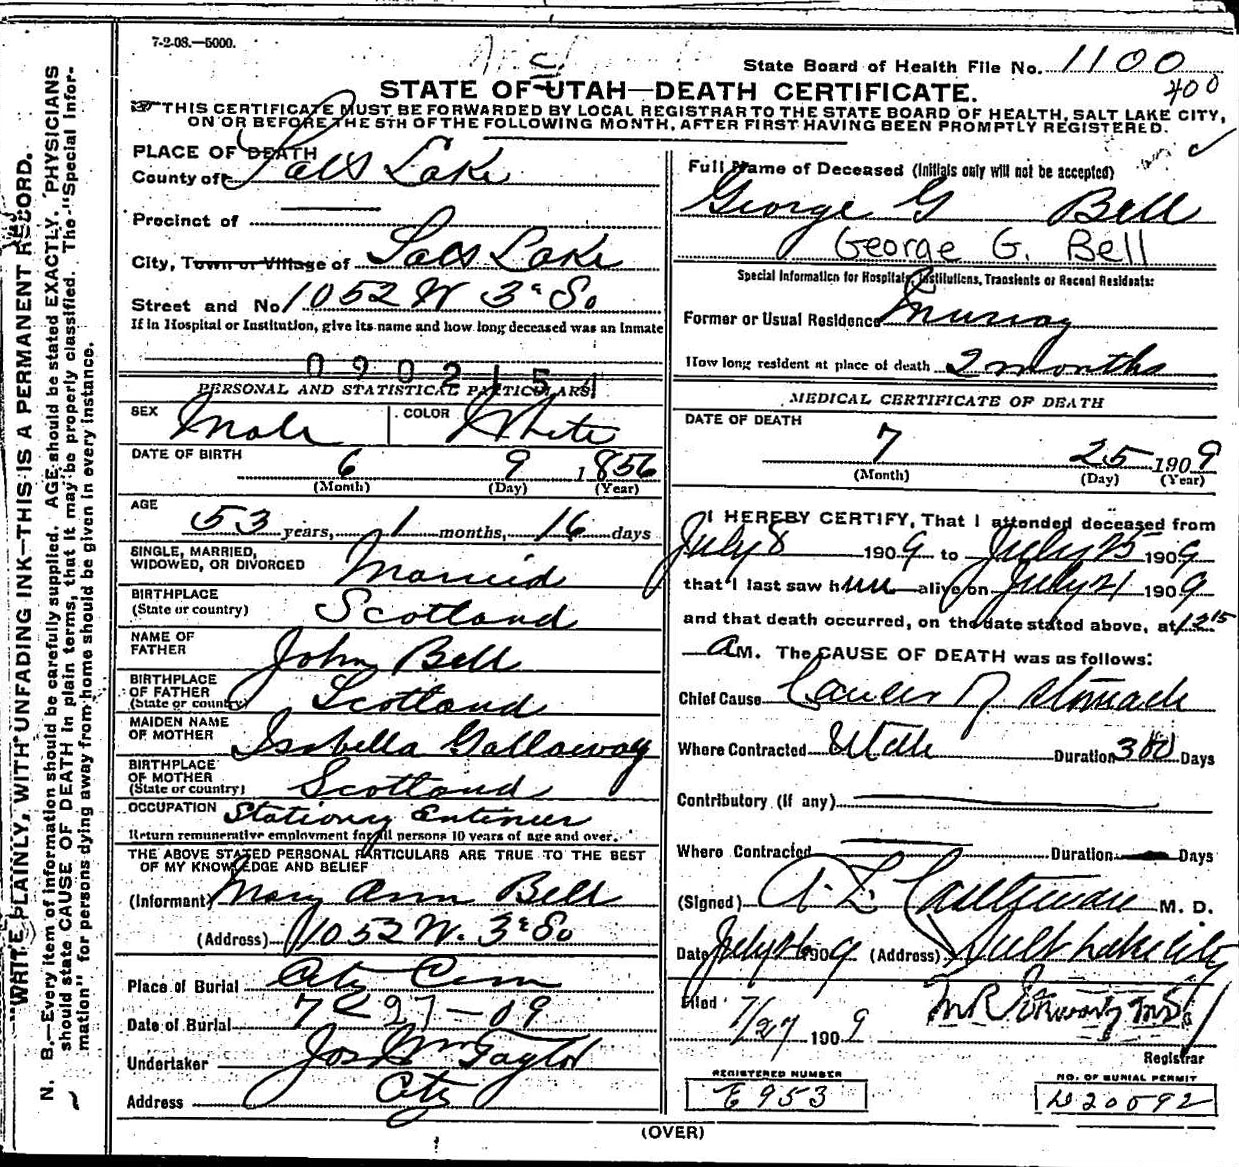 7-2-08.—5000.
State Board of Health File No. 1100
400
STATE OF UTAH—DEATH CERTIFICATE.
THIS CERTIFICATE MUST BE FORWARDED BY LOCAL REGISTRAR TO THE STATE BOARD OF HEALTH, SALT LAKE CITY,
ON OR BEFORE THE 5TH OF THE FOLLOWING MONTH, AFTER FIRST HAVING BEEN PROMPTLY REGISTERED.
WRITE PLAINLY, WITH UNFADING INK—THIS IS A PERMANENT RECORD.
N. B.—Every item of information should be carefully supplied. AGE should be stated EXACTLY. PHYSICIANS
should state CAUSE OF DEATH in plain terms, that it may be properly classified. The "Special Infor-
mation" for persons dying away from home should be given in every instance.
PLACE OF DEATH
County of Salt Lake
Precinct of
City, Town or Village of Salt Lake
Street and No. 1052 W 3d So
If in Hospital or Institution, give its name and how long deceased was an inmate
0902151
PERSONAL AND STATISTICAL PARTICULARS
SEX Male COLOR White
DATE OF BIRTH 6 9 1856
(Month) (Day) (Year)
AGE
53 years, 1 months, 16 days
SINGLE, MARRIED,
WIDOWED, OR DIVORCED Married
BIRTHPLACE
(State or country) Scotland
NAME OF
FATHER John Bell
BIRTHPLACE
OF FATHER
(State or country) Scotland
MAIDEN NAME
OF MOTHER Isabella Gallaway
BIRTHPLACE
OF MOTHER
(State or country) Scotland
OCCUPATION Stationry Entineer
Return remunerative employment for all persons 10 years of age and over.
THE ABOVE STATED PERSONAL PARTICULARS ARE TRUE TO THE BEST
OF MY KNOWLEDGE AND BELIEF
(Informant) Mary Ann Bell
(Address) 1052 W. 3d So
Place of Burial City Cem
Date of Burial 7-27-09
Undertaker Jos Wm Taylor
Address City
Full Name of Deceased (Initials only will not be accepted)
George G Bell
George G. Bell
Special Information for Hospitals, Institutions, Transients or Recent Residents:
Former or Usual Residence Murray
How long resident at place of death 2 months
MEDICAL CERTIFICATE OF DEATH
DATE OF DEATH
7 25 1909
(Month) (Day) (Year)
I HEREBY CERTIFY, That I attended deceased from
July 8 1909 to July 25 1909
that I last saw him alive on July 21 1909
and that death occurred, on the date stated above, at 12 15
A M. The CAUSE OF DEATH was as follows:
Chief Cause Cancer of stomach
Where Contracted Utah Duration 300 Days
Contributory (if any)
Where Contracted Duration Days
(Signed) M. D.
Date July 26 1909 (Address) Salt Lake City
Filed 7/27 1909
Registrar
REGISTERED NUMBER
E 953
NO. OF BURIAL PERMIT
D20592
(OVER)